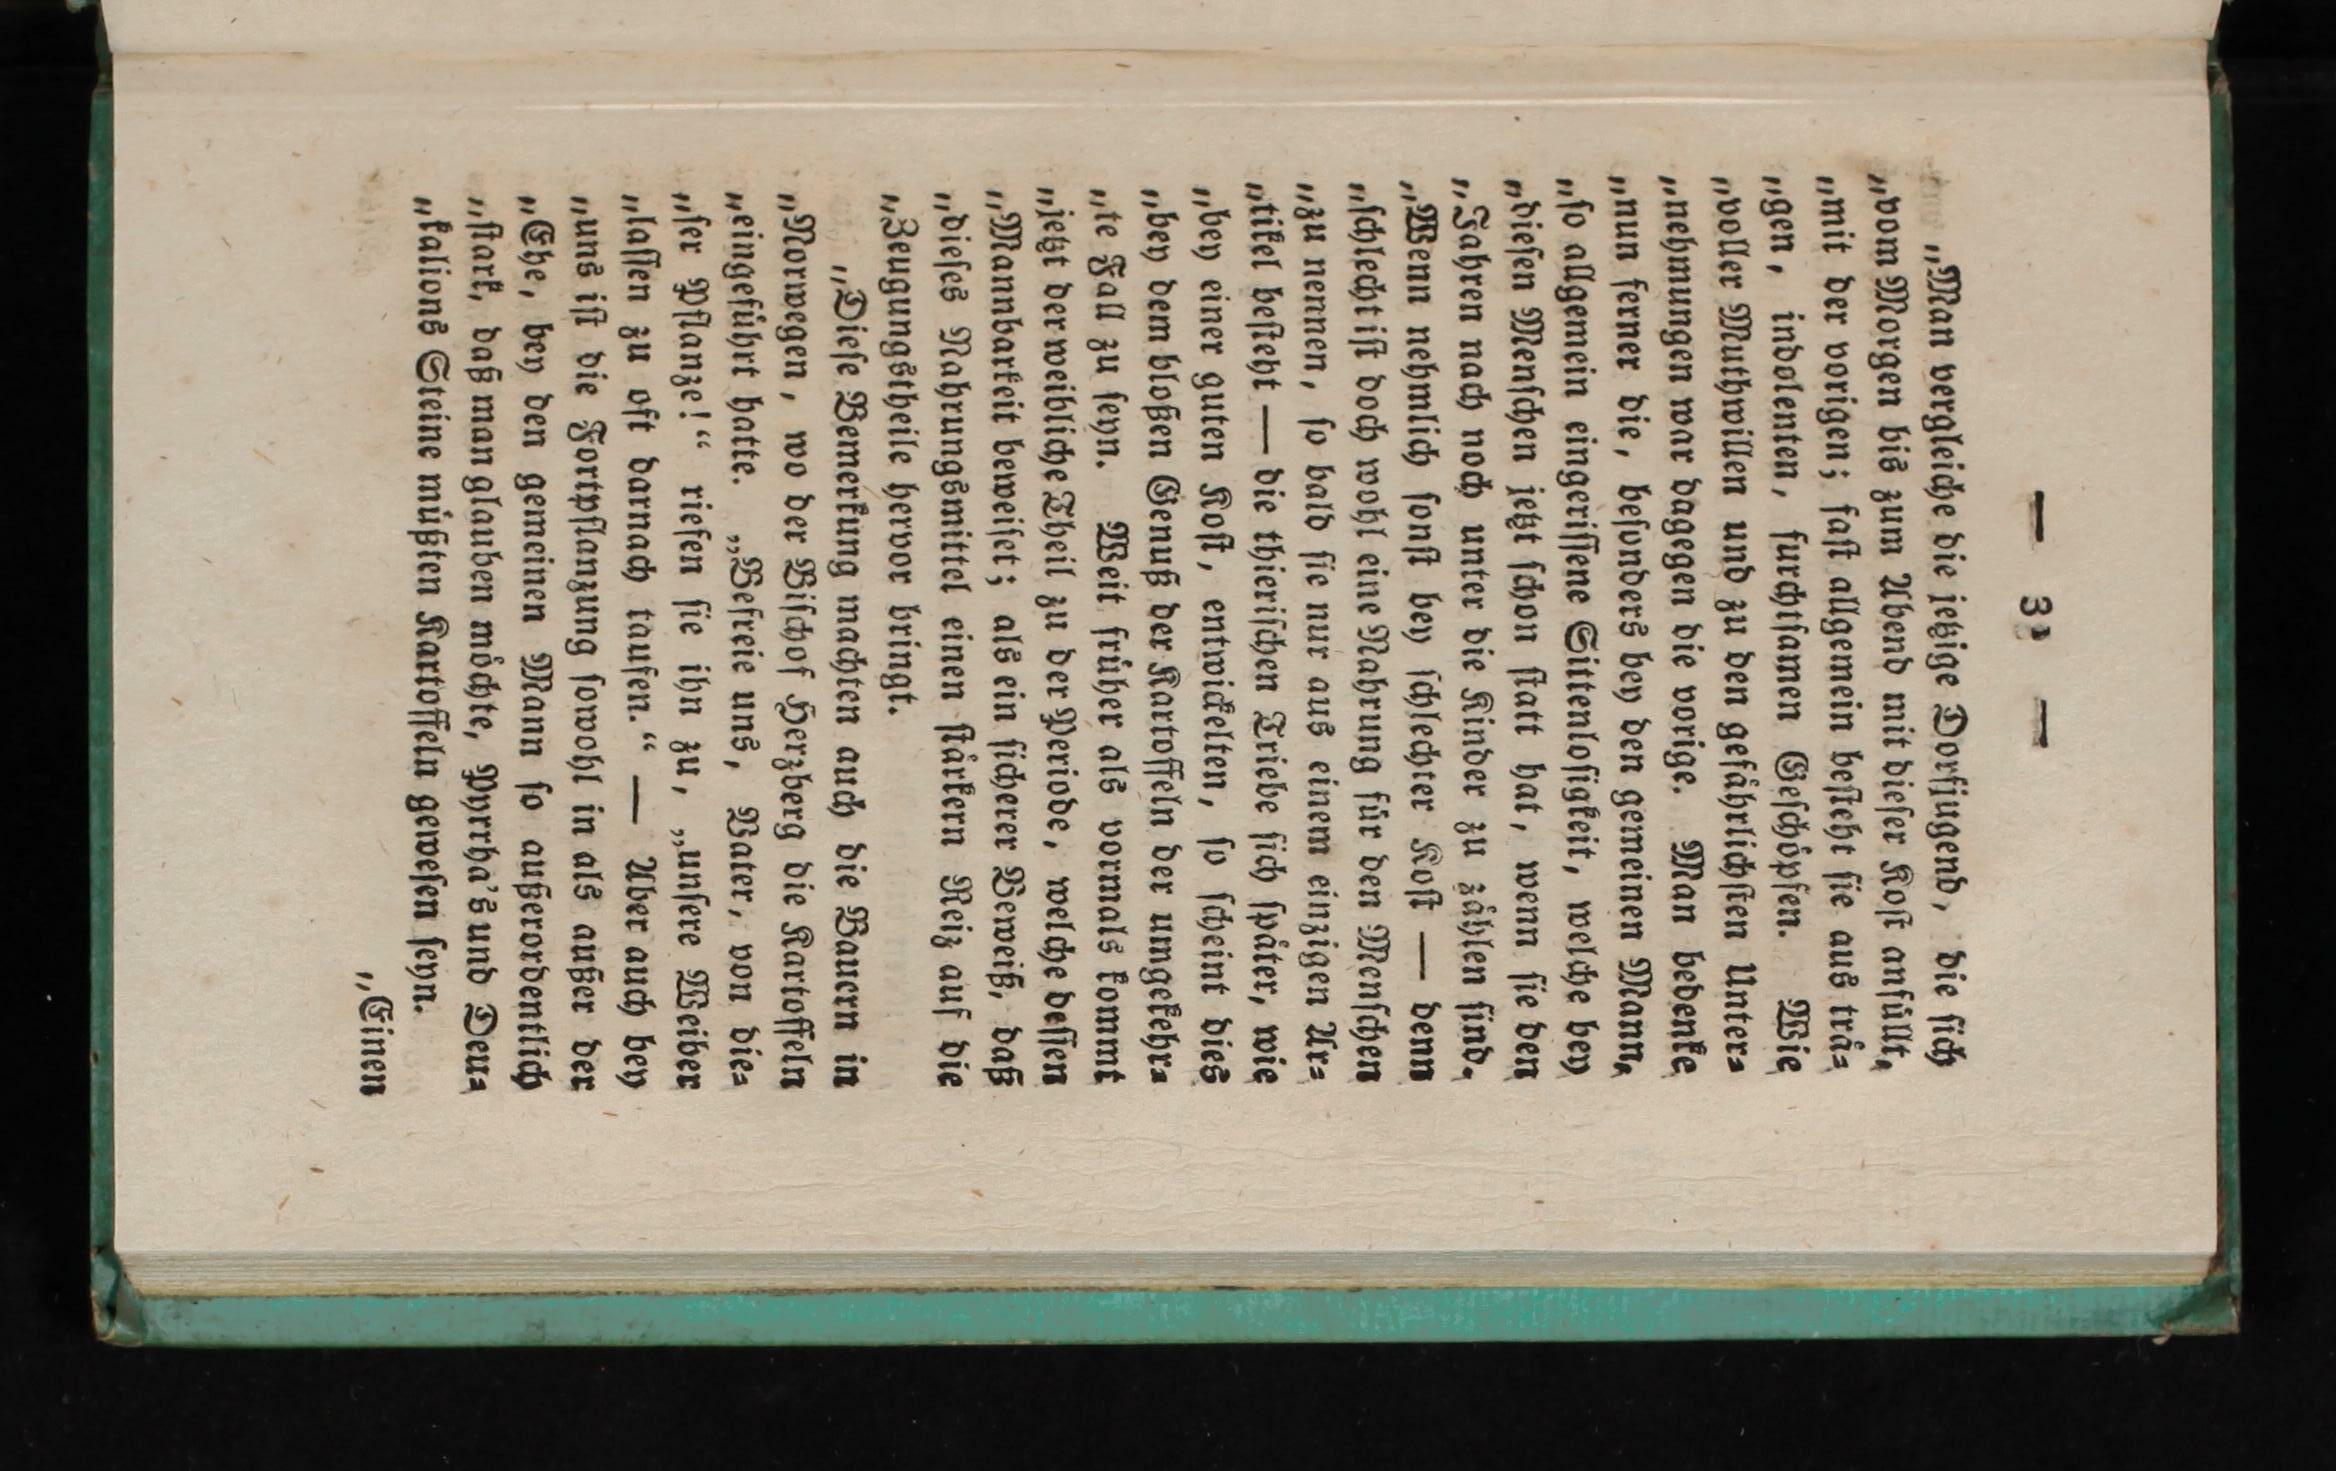 — 32 —
„Man vergleiche die jetzige Dorfjugend, die ſich
„vom Morgen bis zum Abend mit dieſer Koſt anfüllt,
„mit der vorigen; faſt allgemein beſteht ſie aus trä⸗
„gen, indolenten, furchtſamen Geſchöpfen. Wie
„voller Muthwillen und zu den gefährlichſten Unter⸗
„nehmungen war dagegen die vorige. Man bedenke
„nun ferner die, beſonders bey den gemeinen Mann,
„ſo allgemein eingeriſſene Sittenloſigkeit, welche bey
„dieſen Menſchen jetzt ſchon ſtatt hat, wenn ſie den
„Jahren nach noch unter die Kinder zu zählen ſind.
„Wenn nehmlich ſonſt bey ſchlechter Koſt — denn
„ſchlecht iſt doch wohl eine Nahrung für den Menſchen
„zu nennen, ſo bald ſie nur aus einem einzigen Ar⸗
„tikel beſteht — die thieriſchen Triebe ſich ſpäter, wie
„bey einer guten Koſt, entwickelten, ſo ſcheint dies
„bey dem bloßen Genuß der Kartoffeln der umgekehr⸗
„te Fall zu ſeyn. Weit früher als vormals kommt
„jetzt der weibliche Theil zu der Periode, welche deſſen
„Mannbarkeit beweiſet; als ein ſicherer Beweiß, daß
„dieſes Nahrungsmittel einen ſtärkern Reiz auf die
„Zeugungstheile hervor bringt.
„Dieſe Bemerkung machten auch die Bauern in
„Norwegen, wo der Biſchof Herzberg die Kartoffeln
„eingeführt hatte. „Befreie uns, Vater, von die⸗
„ſer Pflanze!“ riefen ſie ihn zu, „unſere Weiber
„laſſen zu oft darnach taufen.“ — Aber auch bey
„uns iſt die Fortpflanzung ſowohl in als außer der
„Ehe, bey den gemeinen Mann ſo außerordentlich
„ſtark, daß man glauben möchte, Pyrrha's und Deu⸗
„kalions Steine müßten Kartoffeln geweſen ſeyn.
„Einen